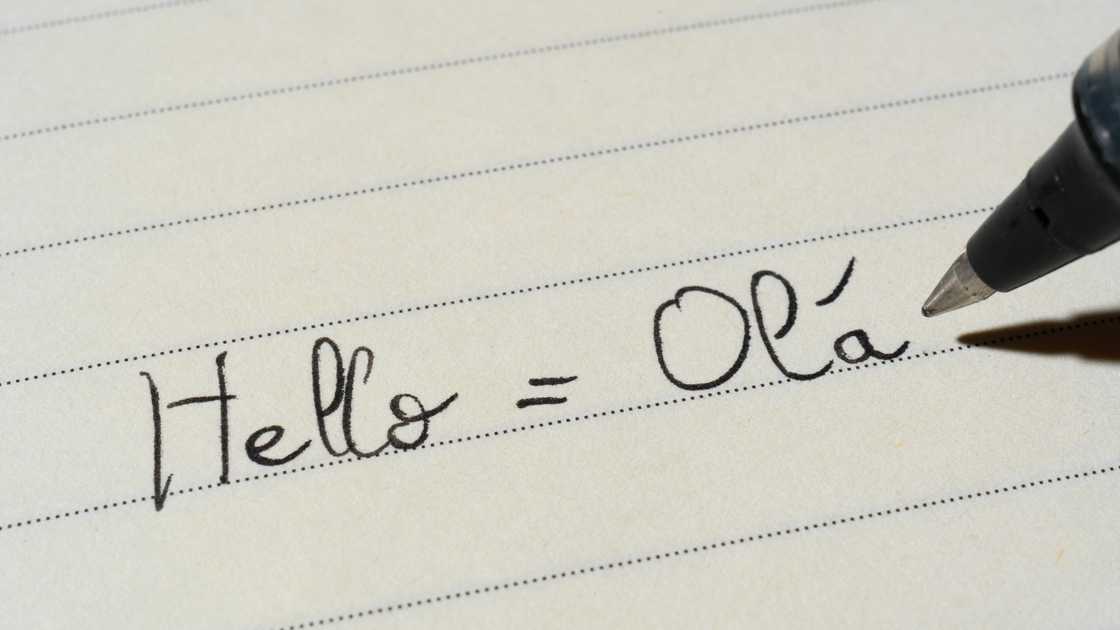 Hello = Olá